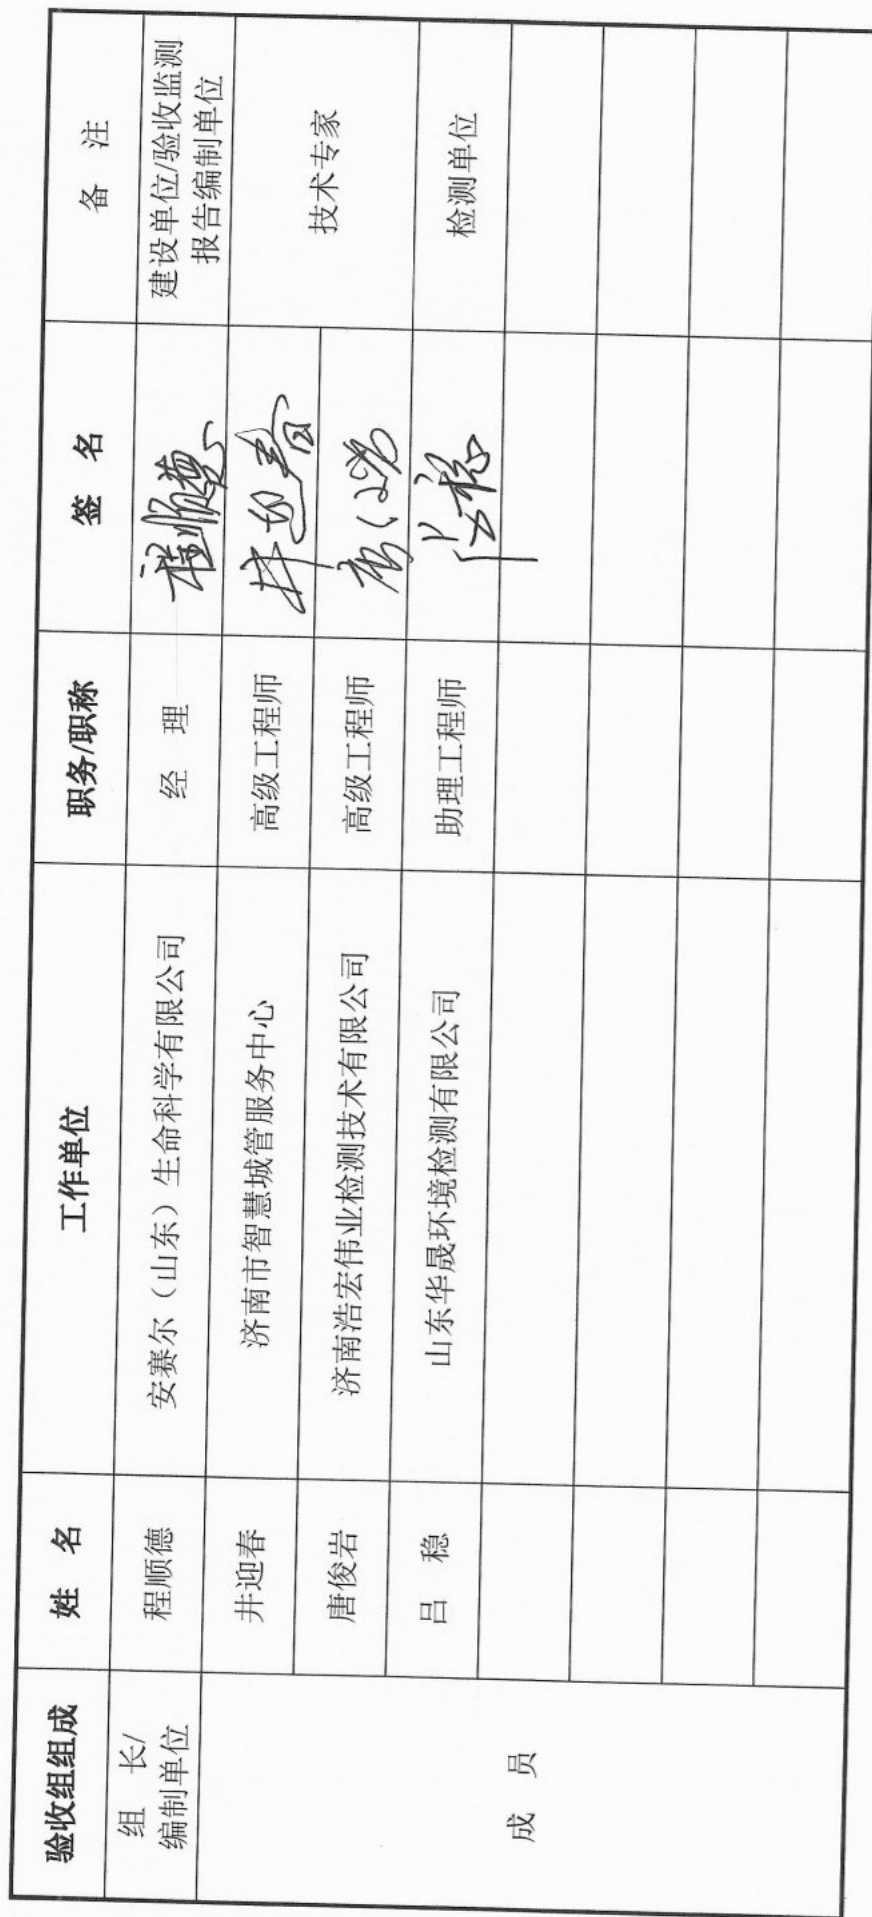 验收组组成 姓 名 工作单位 职务/职称 签 名 备 注
组 长/
编制单位
程顺德 安赛尔（山东）生命科学有限公司 经 理 程顺德
建设单位/验收监测
报告编制单位
成 员
井迎春 济南市智慧城管服务中心 高级工程师 井迎春
技术专家
唐俊岩 济南浩宏伟业检测技术有限公司 高级工程师
吕 稳 山东华晟环境检测有限公司 助理工程师 检测单位